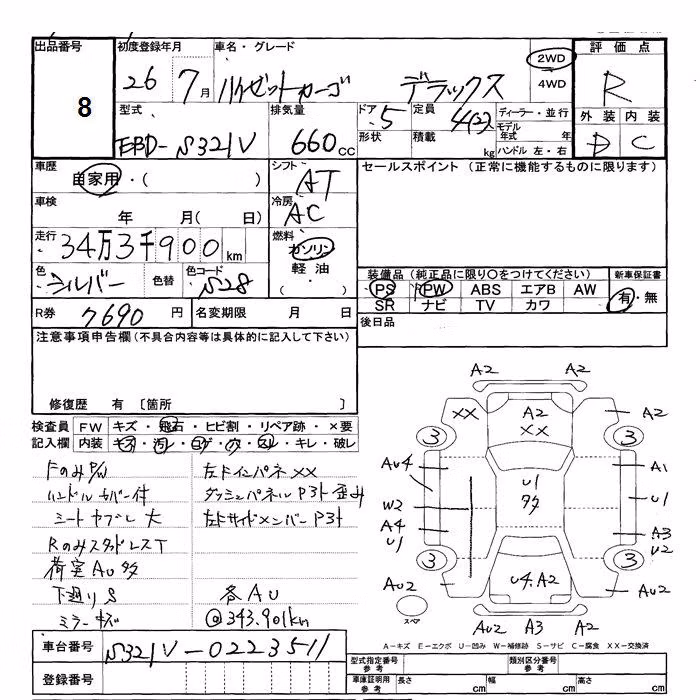 出品番号
8
初度登録年月
26 7月
車名・グレード
ハイゼットカーゴ デラックス
2WD
4WD
評価点
R
外装 内装
D C
型式
EBD-S321V
排気量
660cc
ドア 5
形状
定員 4(2)
積載 kg
ディーラー・並行
モデル年式 年
ハンドル 左・右
車歴
自家用・( )
シフト AT
車検 年 月( 日)
冷房 AC
走行 34万3千900km
燃料 ガソリン
軽油・
( )
色 シルバー 色替 色コード S28
R券 7690円 名変期限 月 日
セールスポイント (正常に機能するものに限ります)
装備品 (純正品に限り○をつけてください)
PS PW ABS エアB AW
SR ナビ TV カワ
新車保証書
有・無
後日品
注意事項申告欄(不具合内容等は具体的に記入して下さい)
修復歴 有 〔箇所
検査員記入欄
FW キズ・飛石・ヒビ割・リペア跡・×要
内装 キズ・汚レ・コゲ・穴・スレ・キレ・破レ
FのみP/W
ハンドルカバー付
シートヤブレ大
RのみスタッドレスT
荷室AU多
下廻りS
ミラーキズ
左ドインパネXX
ダッシュパネルP3ト歪み
左ドサイドメンバーP3ト
各AU
@343.901km
車台番号 S321V-0223511
登録番号
A2 A2
XX
A2
XX
A2
3 3
AU4
A1
U1
多
W2
U1
A4
U1
A3
U2
3 3
AU2
U4.A2
AU2
スペア
AU2 A3 A2
A-キズ E-エクボ U-凹み W-補修跡 S-サビ C-腐食 XX-交換済
型式指定番号 参考
類別区分番号 参考
車庫証明用 参考
長さ cm 幅 cm 高さ cm